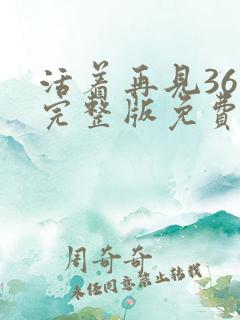 活着再见36
完整版免费
周奇奇
未经同意禁止转载